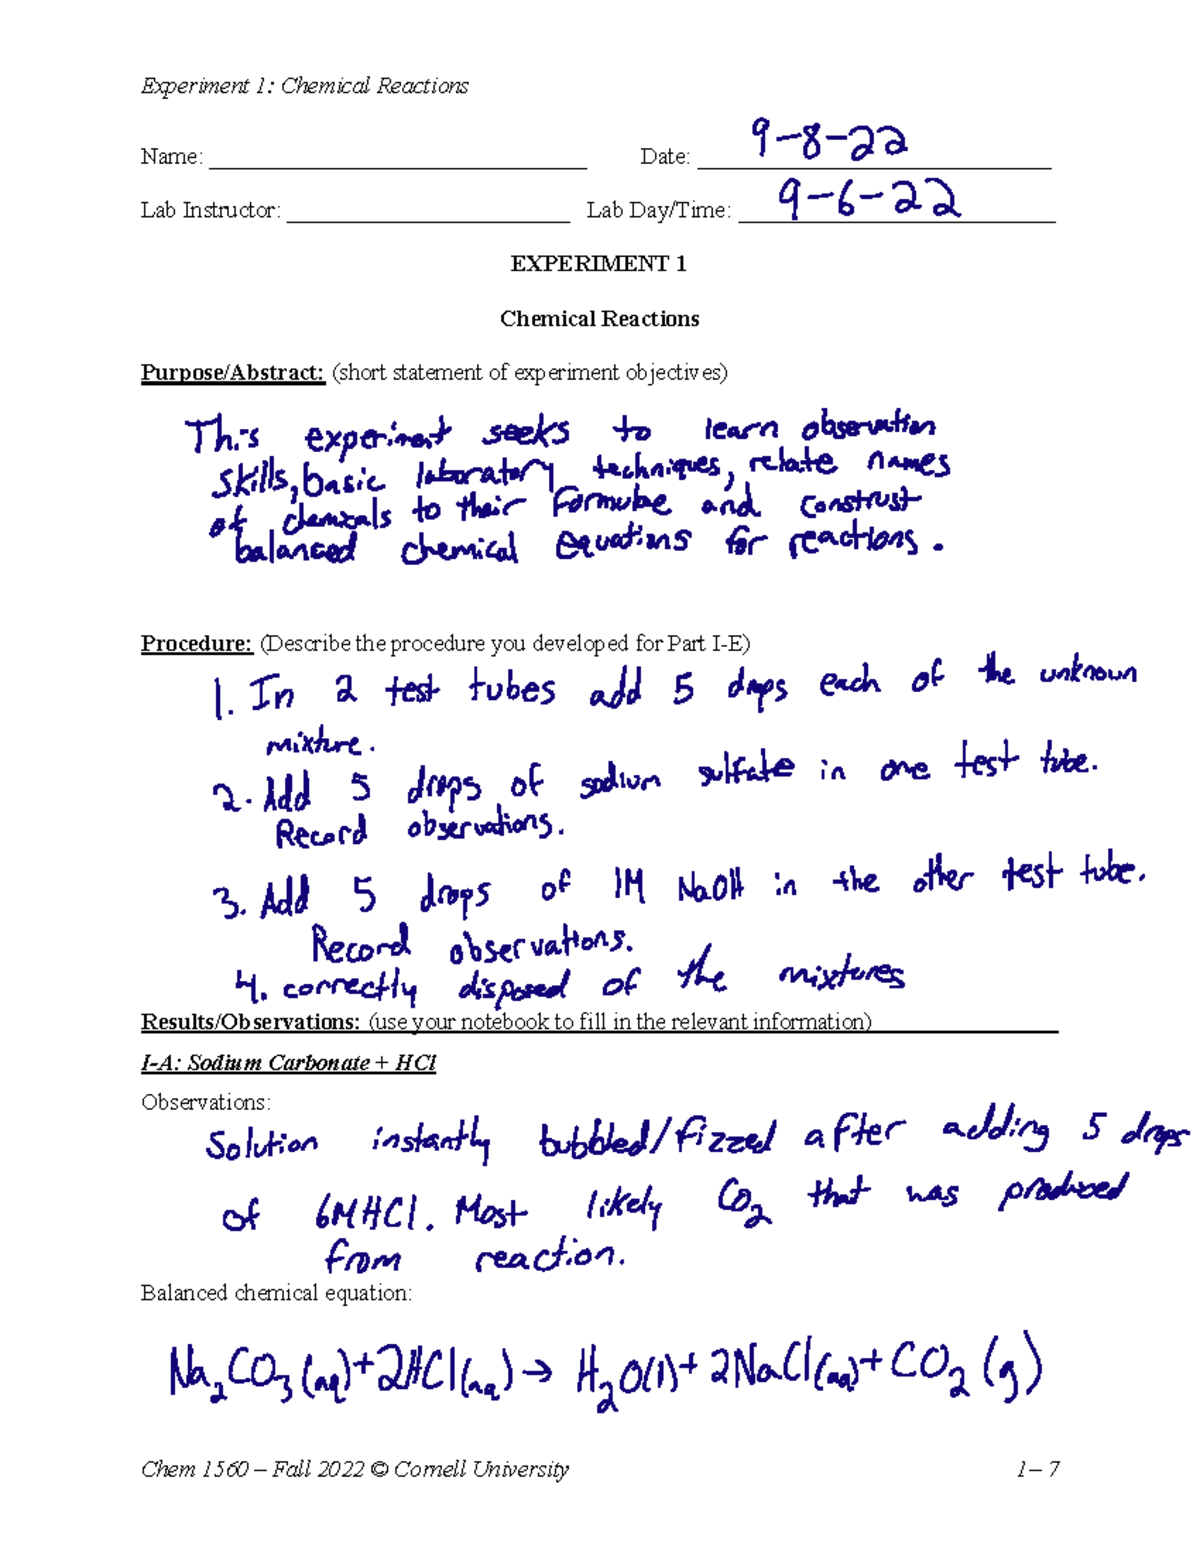 Experiment 1: Chemical Reactions
Name: Date: 9-8-22
Lab Instructor: Lab Day/Time: 9-6-22
EXPERIMENT 1
Chemical Reactions
Purpose/Abstract: (short statement of experiment objectives)
This experiment seeks to learn observation
skills, basic laboratory techniques, relate names
of chemicals to their formulae and construst
balanced chemical equations for reactions.
Procedure: (Describe the procedure you developed for Part I-E)
1. In 2 test tubes add 5 drops each of the unknown
mixture.
2. Add 5 drops of sodium sulfate in one test tube.
Record observations.
3. Add 5 drops of 1M NaOH in the other test tube.
Record observations.
4. correctly disposed of the mixtures
Results/Observations: (use your notebook to fill in the relevant information)
I-A: Sodium Carbonate + HCl
Observations:
Solution instantly bubbled/fizzed after adding 5 drops
of 6MHCl. Most likely CO2 that was produced
from reaction.
Balanced chemical equation:
Na2CO3(aq)+2HCl(aq)→H2O(l)+2NaCl(aq)+CO2(g)
Chem 1560 – Fall 2022 © Cornell University 1– 7